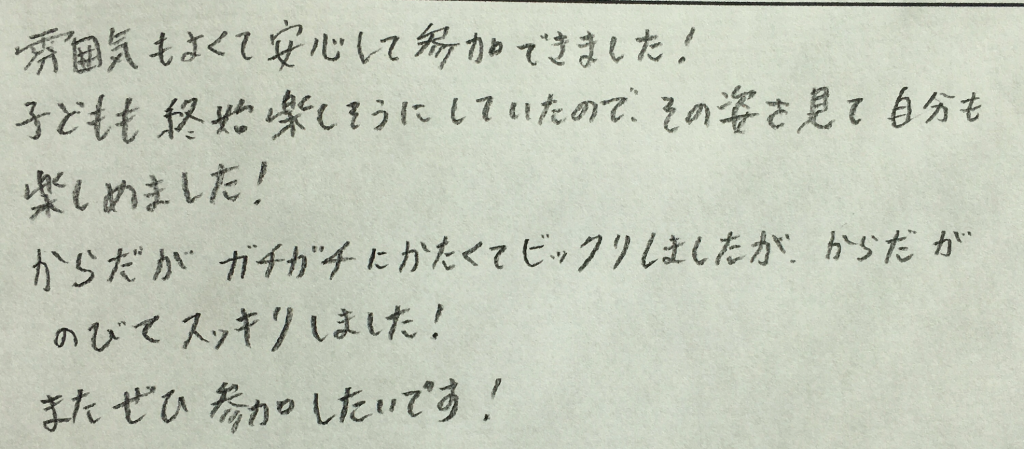 雰囲気もよくて安心して参加できました！
子どもも終始楽しそうにしていたので、その姿を見て自分も
楽しめました！
からだがガチガチにかたくてビックリしましたが、からだが
のびてスッキリしました！
またぜひ参加したいです！